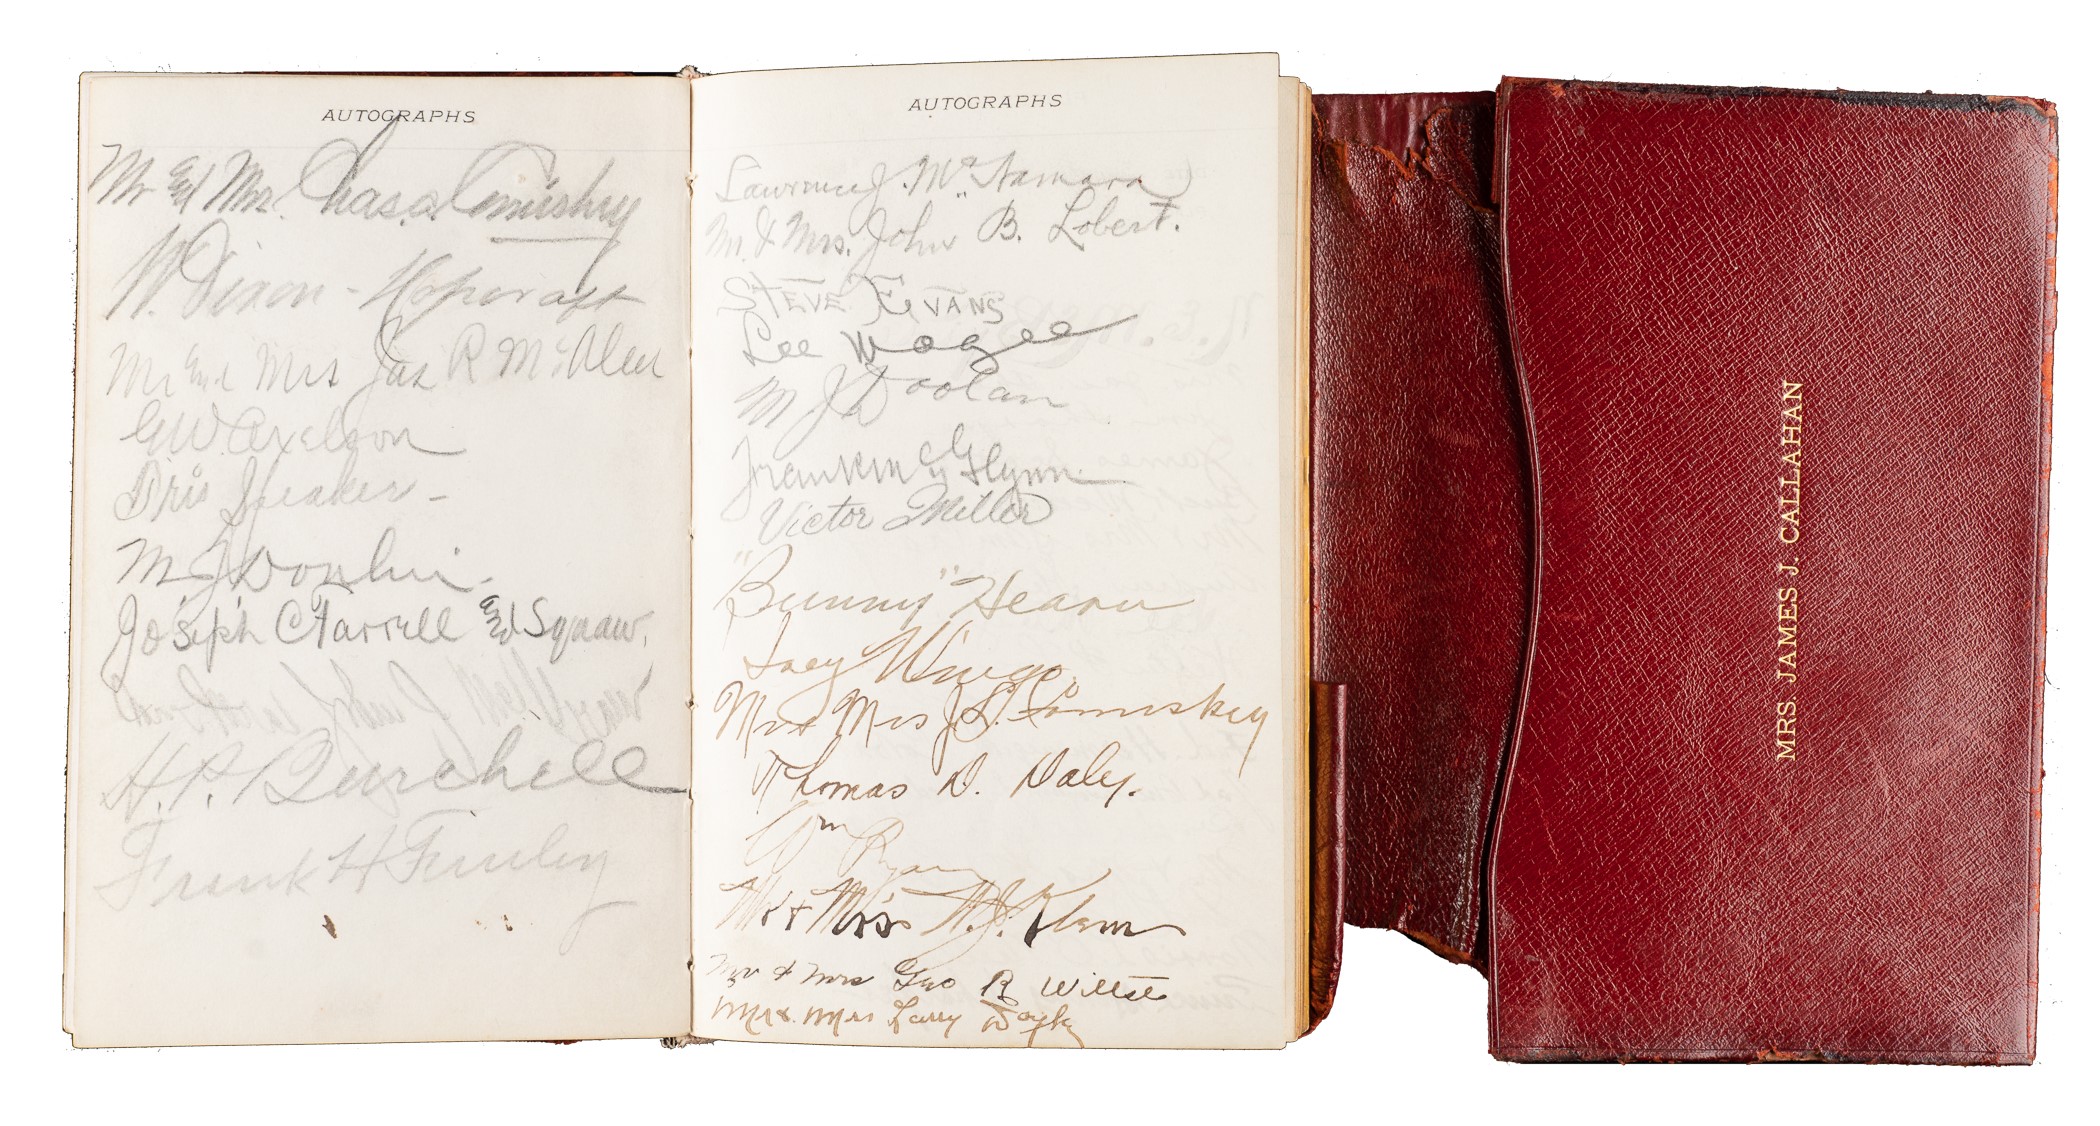 AUTOGRAPHS
Mr and Mrs. Chas. A. Comiskey
W. Dixon - Hopcraft
Mr and Mrs Jas R McAleer
G W. Axelson
Tris Speaker -
M. J. Donlin.
Joseph C Farrell and Squaw.
H. P. Burchell
Frank H Finley
AUTOGRAPHS
Lawrence J. McNamara
Mr. & Mrs. John B. Lobert.
STEVE EVANS
Lee Magee
M J Doolan
Frank McGlynn
Victor Miller
"Bunny" Hearn
Ivey Wingo
Mr & Mrs J. L. Comiskey
Thomas D. Daly.
Wm Ryan
Mr & Mrs W. J. Klem
Mr & Mrs Geo R Willits
Mr & Mrs Larry Doyle
MRS. JAMES J. CALLAHAN